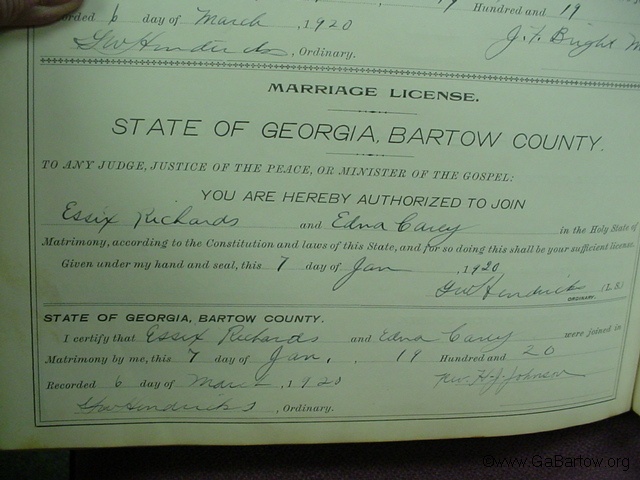 orded 6 day of March, 1920 Hundred and 19
GW Hendricks, Ordinary. J. F. Bright M
MARRIAGE LICENSE.
STATE OF GEORGIA, BARTOW COUNTY.
TO ANY JUDGE, JUSTICE OF THE PEACE, OR MINISTER OF THE GOSPEL:
YOU ARE HEREBY AUTHORIZED TO JOIN
Essix Richards and Edna Carey in the Holy State of
Matrimony, according to the Constitution and laws of this State, and for so doing this shall be your sufficient license.
Given under my hand and seal, this 7 day of Jan, 1920
GW Hendricks (L. S.)
ORDINARY.
STATE OF GEORGIA, BARTOW COUNTY.
I certify that Essix Richards and Edna Carey were joined in
Matrimony by me, this 7 day of Jan., 19 Hundred and 20
Recorded 6 day of March, 1920 Rev. H. J. Johnson
GW Hendricks, Ordinary.
©www.GaBartow.org